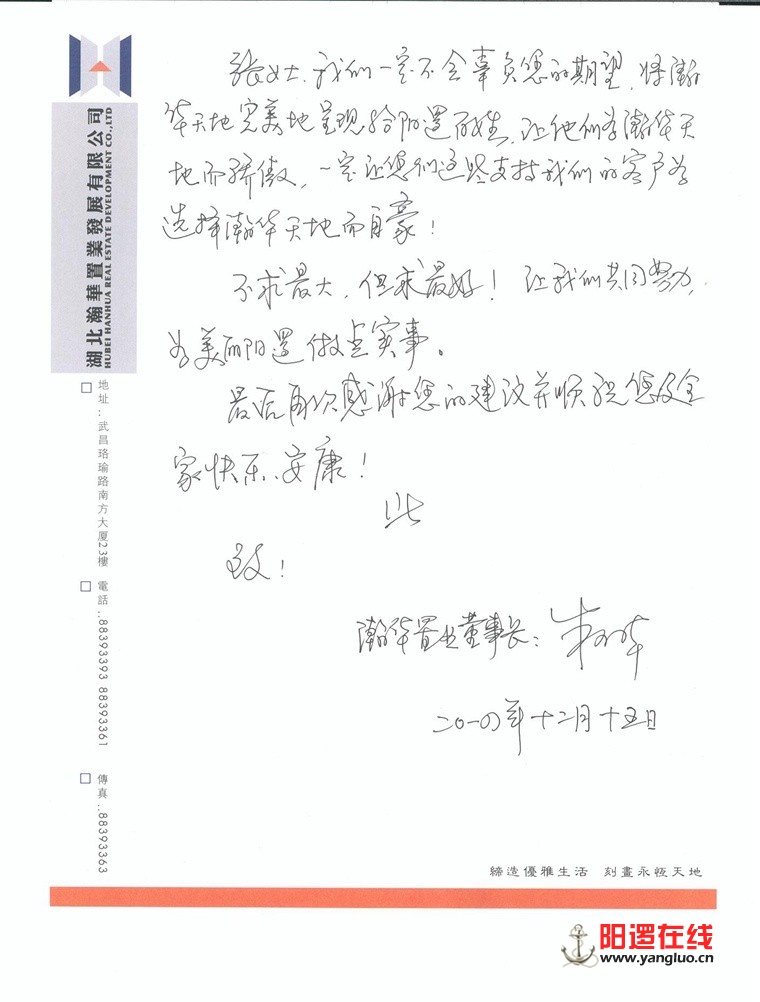 张女士，我们一定不会辜负您的期望，将瀚
华天地完美地呈现给阳逻百姓，让他们为瀚华天
地而骄傲，一定让您们这些支持我们的客户为
选择瀚华天地而自豪！
不求最大，但求最好！让我们共同努力，
为美丽阳逻做点实事。
最后再次感谢您的建议并顺祝您及全
家快乐、安康！
此
致！
瀚华置业董事长：
二〇一四年十二月十五日
湖北瀚華置業發展有限公司
HUBEI HANHUA REAL ESTATE DEVELOPMENT CO.,LTD
地址：武昌珞瑜路南方大厦23樓
電話：88393393 88393361
傳真：88393363
締造優雅生活 刻畫永恆天地
阳逻在线
www.yangluo.cn